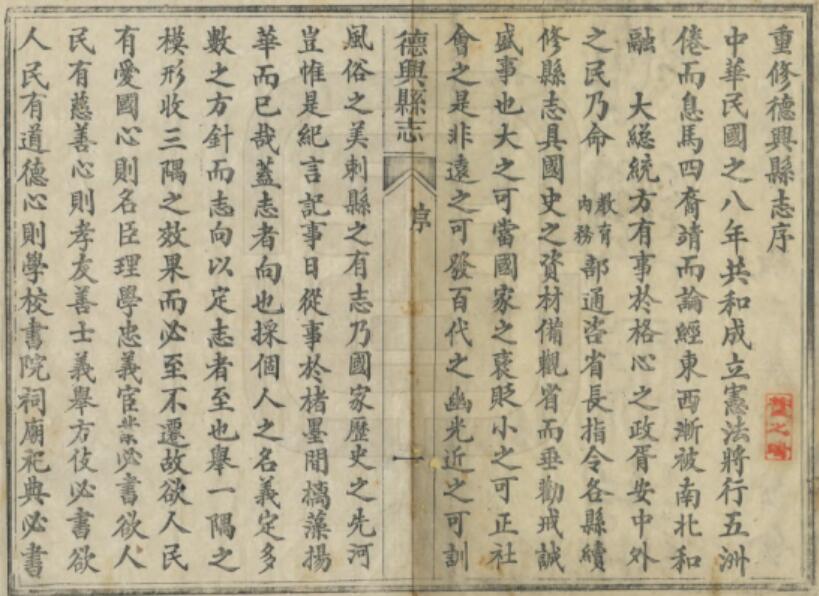 重修德興縣志序
中華民國之八年共和成立憲法將行五洲
倦而息馬四裔靖而論經東西漸被南北和
融　大総統方有事於格心之政胥安中外
之民乃命教育內務部通咨省長指令各縣續
修縣志具國史之資材備觀省而垂勸戒誠
盛事也大之可當國家之褒貶小之可正社
會之是非遠之可發百代之幽光近之可訓
德興縣志　序　一
風俗之美刺縣之有志乃國家歷史之先河
豈惟是紀言記事日從事於楮墨間摛藻揚
華而已哉蓋志者向也採個人之名義定多
數之方針而志向以定志者至也舉一隅之
模形收三隅之效果而必至不遷故欲人民
有愛國心則名臣理學忠義宦業必書欲人
民有慈善心則孝友善士義舉方伎必書欲
人民有道德心則學校書院祠廟祀典必書